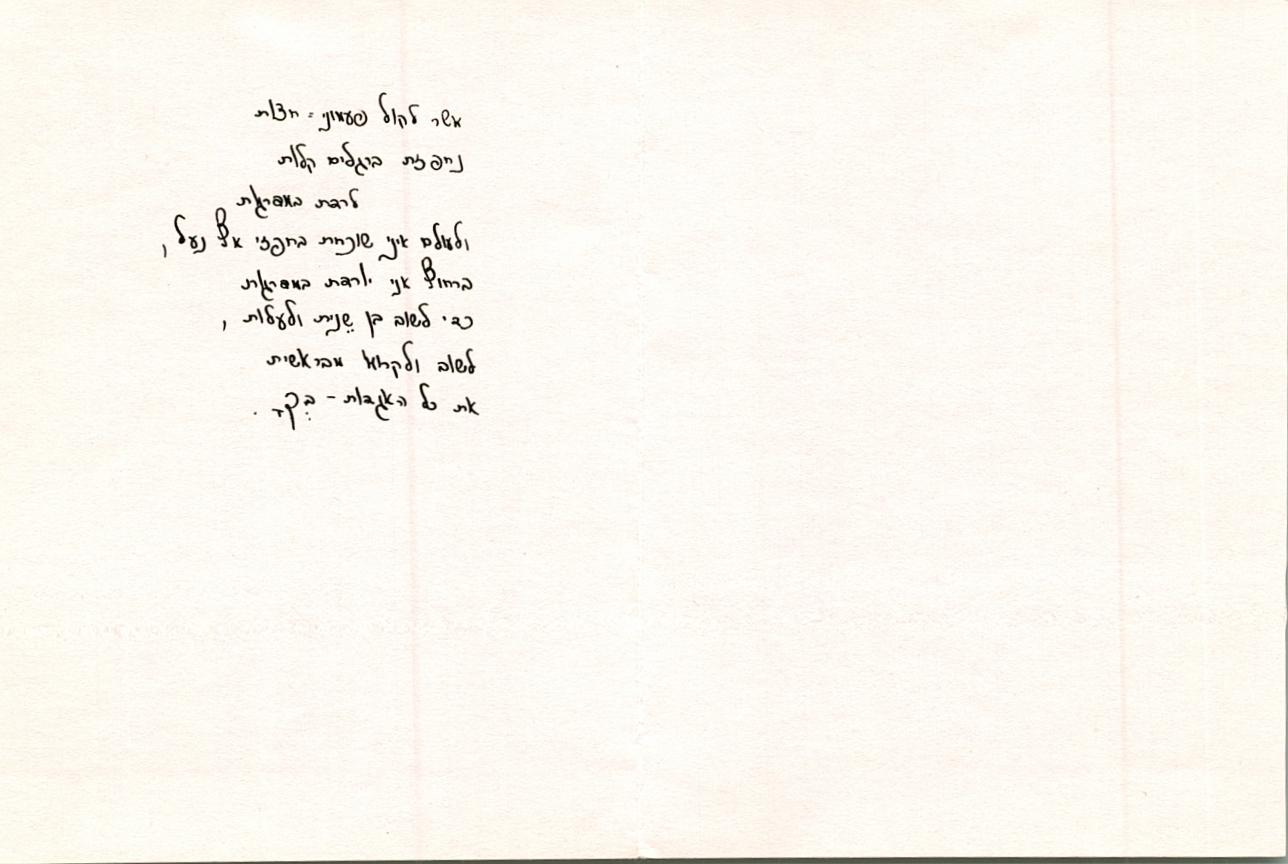 אשר לקול פעמוני-חצות
נחפזת ברגלים קלות
לרדת במדרגות
ולעולם איני שוכחת בחפזי אף נעל,
ברחוף אני יורדת במדרגות
כדי לשוב בן שֵנית ולעלות,
לשוב ולקרוא מבראשית
את כל האגדות -